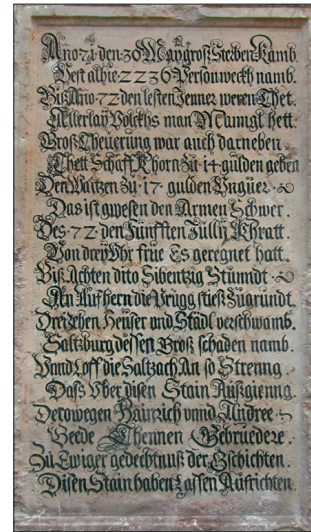 Año 71 den 30 Maÿ groß Sterben kamb.
Pest alhie 2236 Person weckh namb.
Biß Año 72 den lesten Jenner weren Thet.
Allerlaÿ Volckhs man Mannigl hett.
Groß Theuerung war auch darneben.
Schaff Khorn zu 14 gulden geben
Den Waitzen zu 17 gulden Vngüer
Das ist gwesen den Armen Schwer.
Des 72 den Fünfften Jullÿ Khratt.
Von dreÿ Vhr früe Es geregnet hatt.
Biß Achten dito Sibentzig Stũundt
An Aufhern die Prügg stieß Zugrundt.
Dreizehen Heüser vnd Städl verschwamb.
Saltzburg dessen Groß schaden namb.
Vnnd Loff die Saltzach An so Strenng.
Dass Vber disen Stain Außgienng.
Derowegen Hainrich vnnd Andree
Beede Thennen Gebruedere.
Zu Ewiger gedechtnuß der Gschichten.
Disen Stain haben Lassen Aufrichten.